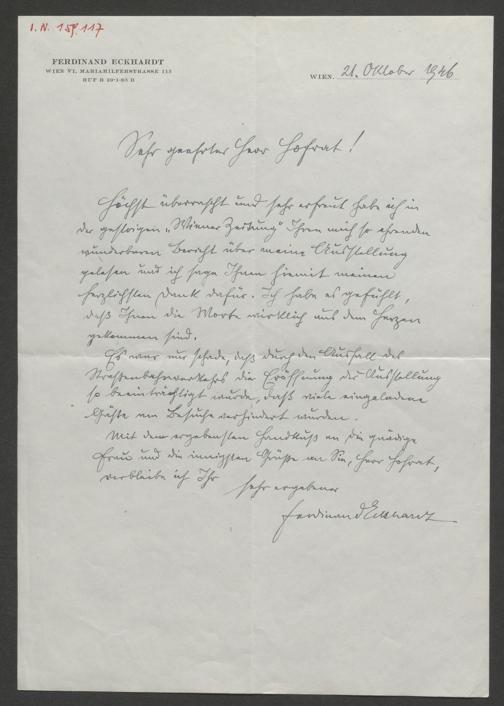 I. N. 159.117
FERDINAND ECKHARDT
WIEN VI, MARIAHILFERSTRASSE 113
RUF B 29-1-93 B
WIEN, 21. Oktober 1946
Sehr geehrter Herr Hofrat!
Höchst überrascht und sehr erfreut habe ich in
der gestrigen „Wiener Zeitung" Ihren mich so ehrenden
wunderbaren Bericht über meine Ausstellung
gelesen und ich sage Ihnen hiemit meinen
herzlichsten Dank dafür. Ich habe es gefühlt,
daß Ihnen die Worte wirklich aus dem Herzen
gekommen sind.
Es war nur schade, daß durch den Ausfall des
Straßenbahnverkehrs die Eröffnung der Ausstellung
so beeinträchtigt wurde, daß viele eingeladene
Gäste am Besuche verhindert wurden.
Mit dem ergebensten Handkuß an die gnädige
Frau und die innigsten Grüße an Sie, Herr Hofrat,
verbleibe ich Ihr
sehr ergebener
Ferdinand Eckhardt